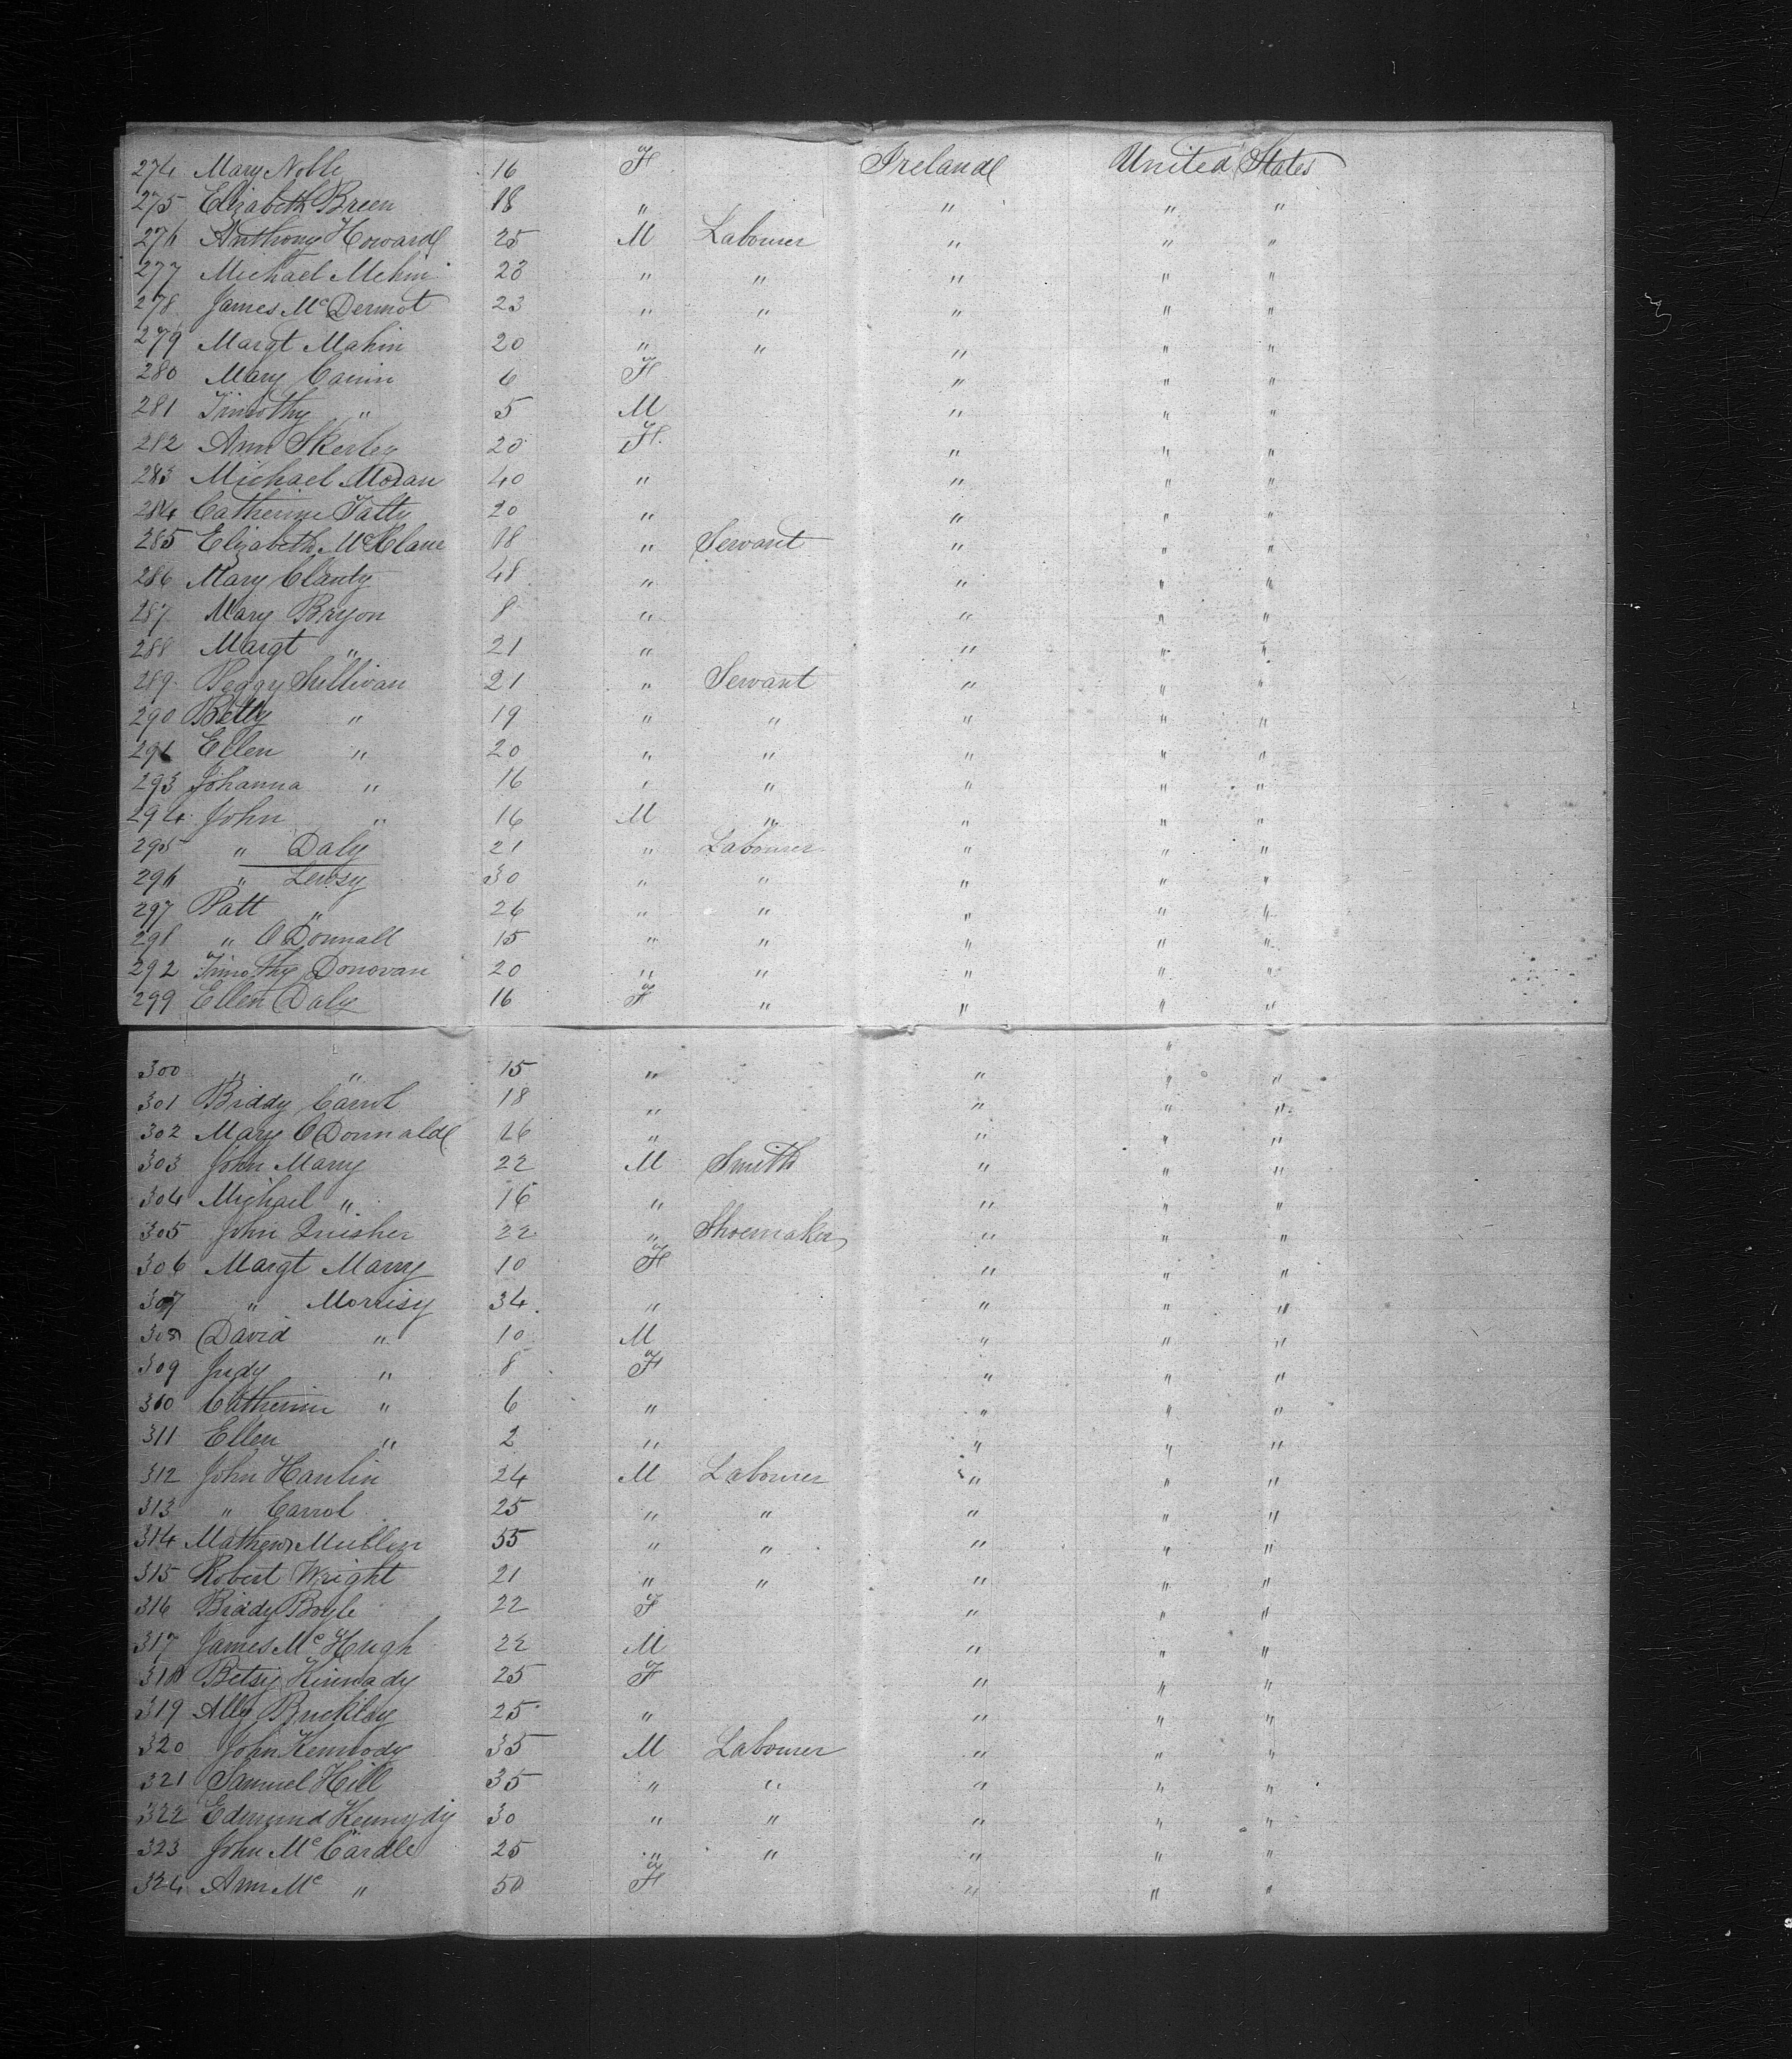 274 Mary Noble 16 F Ireland United States
275 Elizabeth Breen 18 " " " "
276 Anthony Howard 25 M Labourer " " "
277 Michael Mehin 23 " " " " "
278 James McDermot 23 " " " " "
279 Margt Mahin 20 " " " " "
280 Mary Cainin 6 F " " "
281 Timothy " 5 M " " "
282 Ann Skerley 20 F " " "
283 Michael Moran 40 " " " "
284 Catherine Tatty 20 " " " "
285 Elizabeth 18 " Servant " " "
286 Mary Clanty 48 " " " "
287 Mary Bryon 8 " " " "
288 Margt " 21 " " " "
289 Peggy Sullivan 21 " Servant " " "
290 Betty " 19 " " " " "
291 Ellen " 20 " " " " "
293 Johanna " 16 " " " " "
294 John " 16 M " " " "
295 " Daly 21 " Labourer " " "
296 " Lewsy 30 " " " " "
297 Patt " 26 " " " " "
298 " O Donnall 15 " " " " "
292 Timothy Donovan 20 " " " " "
299 Ellen Daly 16 F " " " "
300 " " 15 " " " "
301 Biddy Carrol 18 " " " "
302 Mary O Donnald 16 " " " "
303 John Marry 22 M Smith " " "
304 Michael " 16 " " " "
305 John 22 " Shoemaker " " "
306 Margt Marry 10 F " " "
307 " Morrisy 34 " " " "
308 David " 10 M " " "
309 Judy " 8 F " " "
310 Catherine " 6 " " " "
311 Ellen " 2 " " " "
312 John Hanlin 24 M Labourer " " "
313 " Carrol 25 " " " " "
314 Mathew Mullen 55 " " " " "
315 Robert Wright 21 " " " " "
316 Biddy Boyle 22 F " " "
317 James Mc Hugh 22 M " " "
318 Betsy Kinnady 25 F " " "
319 Ally Buckley 25 " " " "
320 John 35 M Labourer " " "
321 Samuel Hill 35 " " " " "
322 Edmund Kennydy 30 " " " " "
323 John McCardle 25 " " " " "
324 Ann Mc " 50 F " " "